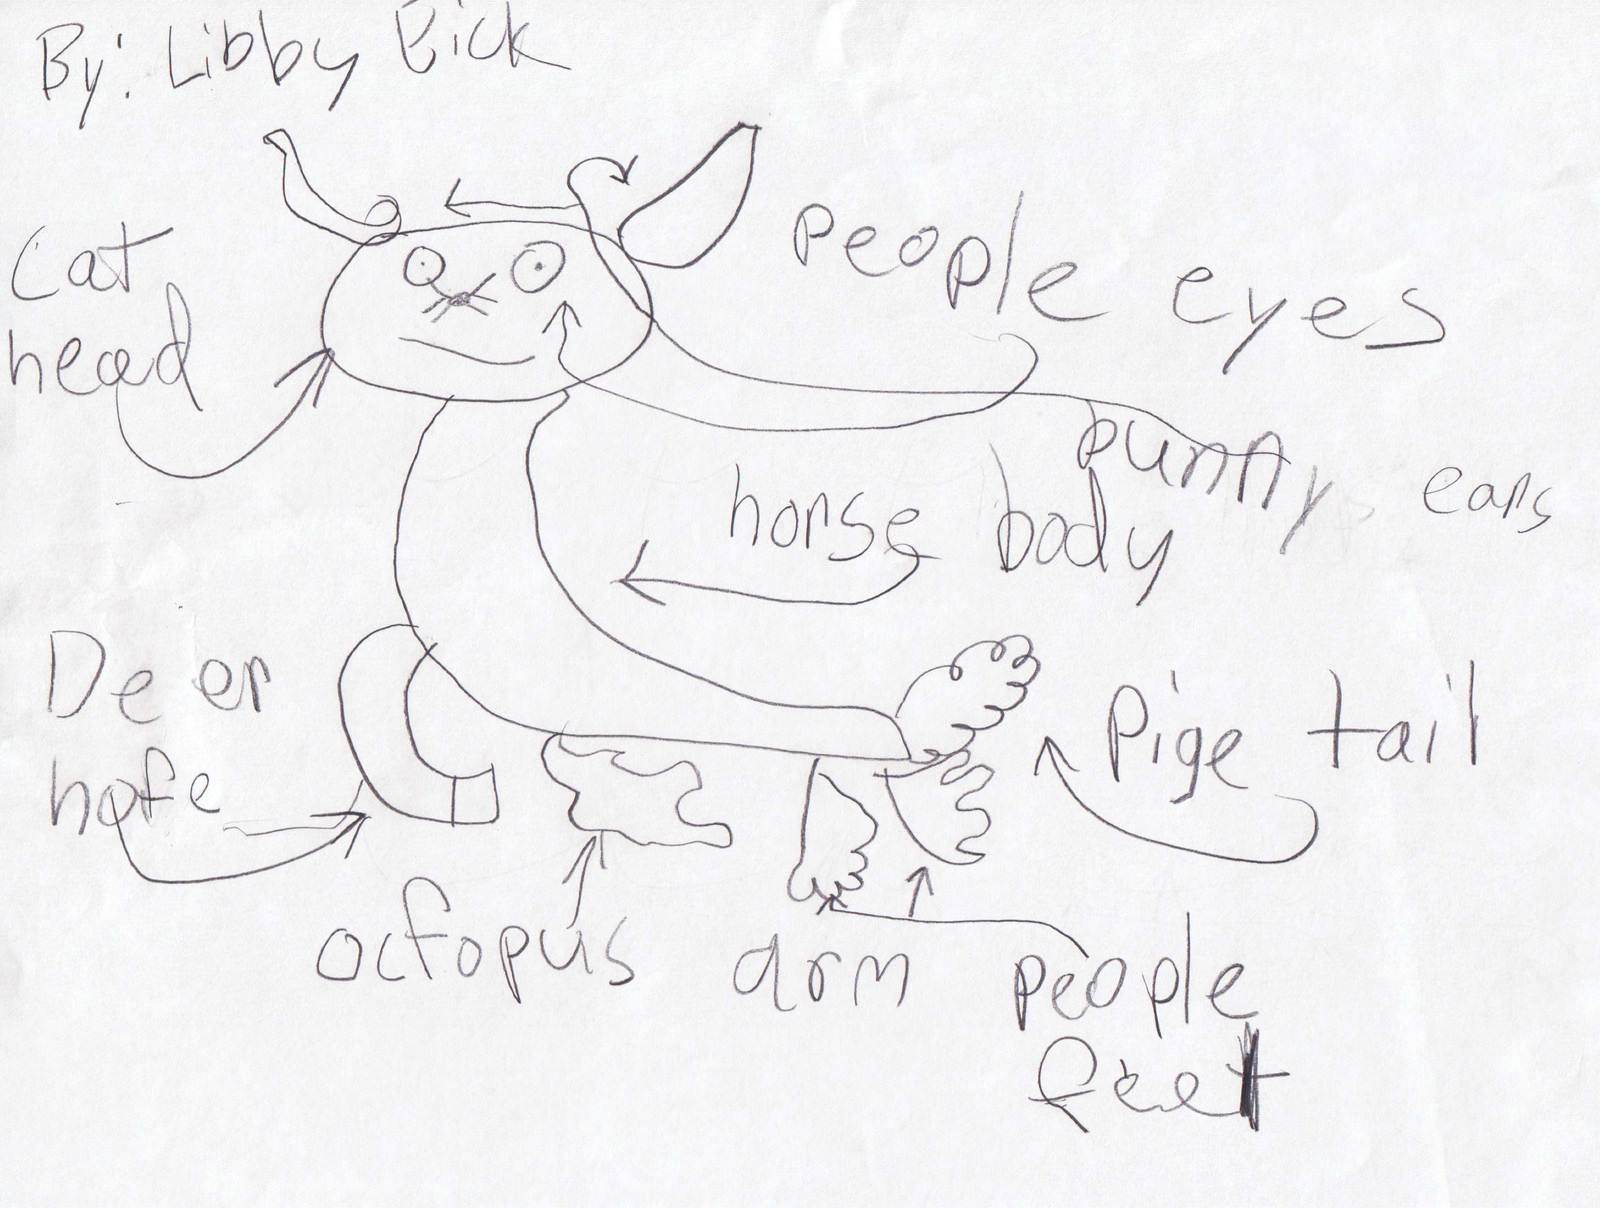 By: Libby Eick
Cat
head
people eyes
punny ears
horse body
Deer
hofe
Pige tail
octopus arm
people
feet